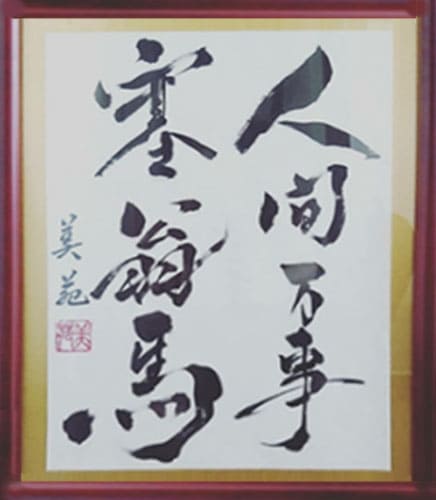 人間万事
塞翁馬
美苑